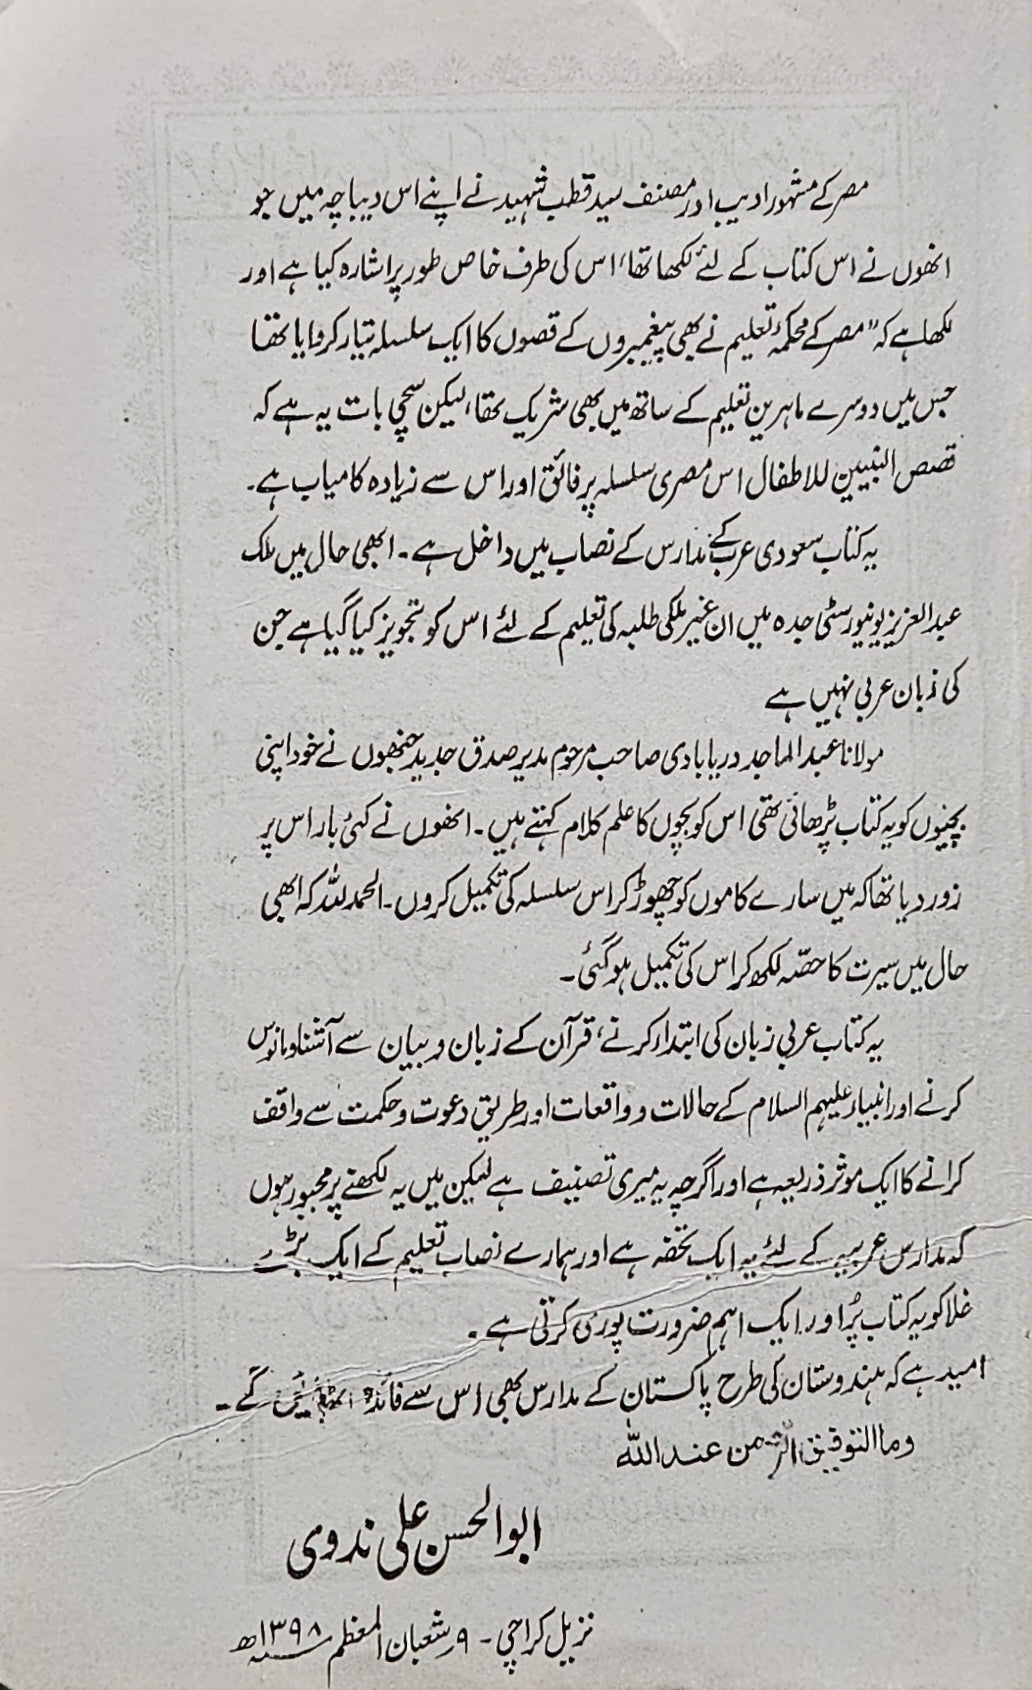 مصر کے مشہور ادیب اور مصنف سید قطب شہید نے اپنے اس دیباچہ میں جو
انھوں نے اس کتاب کے لئے لکھا تھا، اس کی طرف خاص طور پر اشارہ کیا ہے اور
لکھا ہے کہ "مصر کے محکمۂ تعلیم نے بھی پیغمبروں کے قصوں کا ایک سلسلہ تیار کروایا تھا
جس میں دوسرے ماہرین تعلیم کے ساتھ میں بھی شریک تھا، لیکن سچی بات یہ ہے کہ
قصص النبیین للاطفال اس مصری سلسلہ پر فائق اور اس سے زیادہ کامیاب ہے۔
یہ کتاب سعودی عرب کے مدارس کے نصاب میں داخل ہے۔ ابھی حال میں ملک
عبدالعزیز یونیورسٹی جدہ میں ان غیر ملکی طلبہ کی تعلیم کے لئے اس کو تجویز کیا گیا ہے جن
کی زبان عربی نہیں ہے
مولانا عبدالماجد دریابادی صاحب مرحوم مدیر صدق جدید جنھوں نے خود اپنی
بچیوں کو یہ کتاب پڑھائی تھی اس کو بچوں کا علم کلام کہتے ہیں۔ انھوں نے کئی بار اس پر
زور دیا تھا کہ میں سارے کاموں کو چھوڑ کر اس سلسلہ کی تکمیل کروں۔ الحمدللہ کہ ابھی
حال میں سیرت کا حصّہ لکھ کر اس کی تکمیل ہو گئی۔
یہ کتاب عربی زبان کی ابتداء کرنے، قرآن کے زبان و بیان سے آشنا و مانوس
کرنے اور انبیاء علیہم السلام کے حالات و واقعات اور طریق دعوت و حکمت سے واقف
کرانے کا ایک موثر ذریعہ ہے اور اگرچہ یہ میری تصنیف ہے لیکن میں یہ لکھنے پر مجبور ہوں
کہ مدارس عربیہ کے لئے یہ ایک تحفہ ہے اور ہمارے نصاب تعلیم کے ایک بڑے
خلا کو یہ کتاب پُر اور ایک اہم ضرورت پوری کرتی ہے۔
امید ہے کہ ہندوستان کی طرح پاکستان کے مدارس بھی اس سے فائدہ اٹھائیں گے۔
وما التوفیق الّا من عند اللہ
ابوالحسن علی ندوی
نزیل کراچی۔ ۹ر شعبان المعظم سنہ ۱۳۹۸ھ